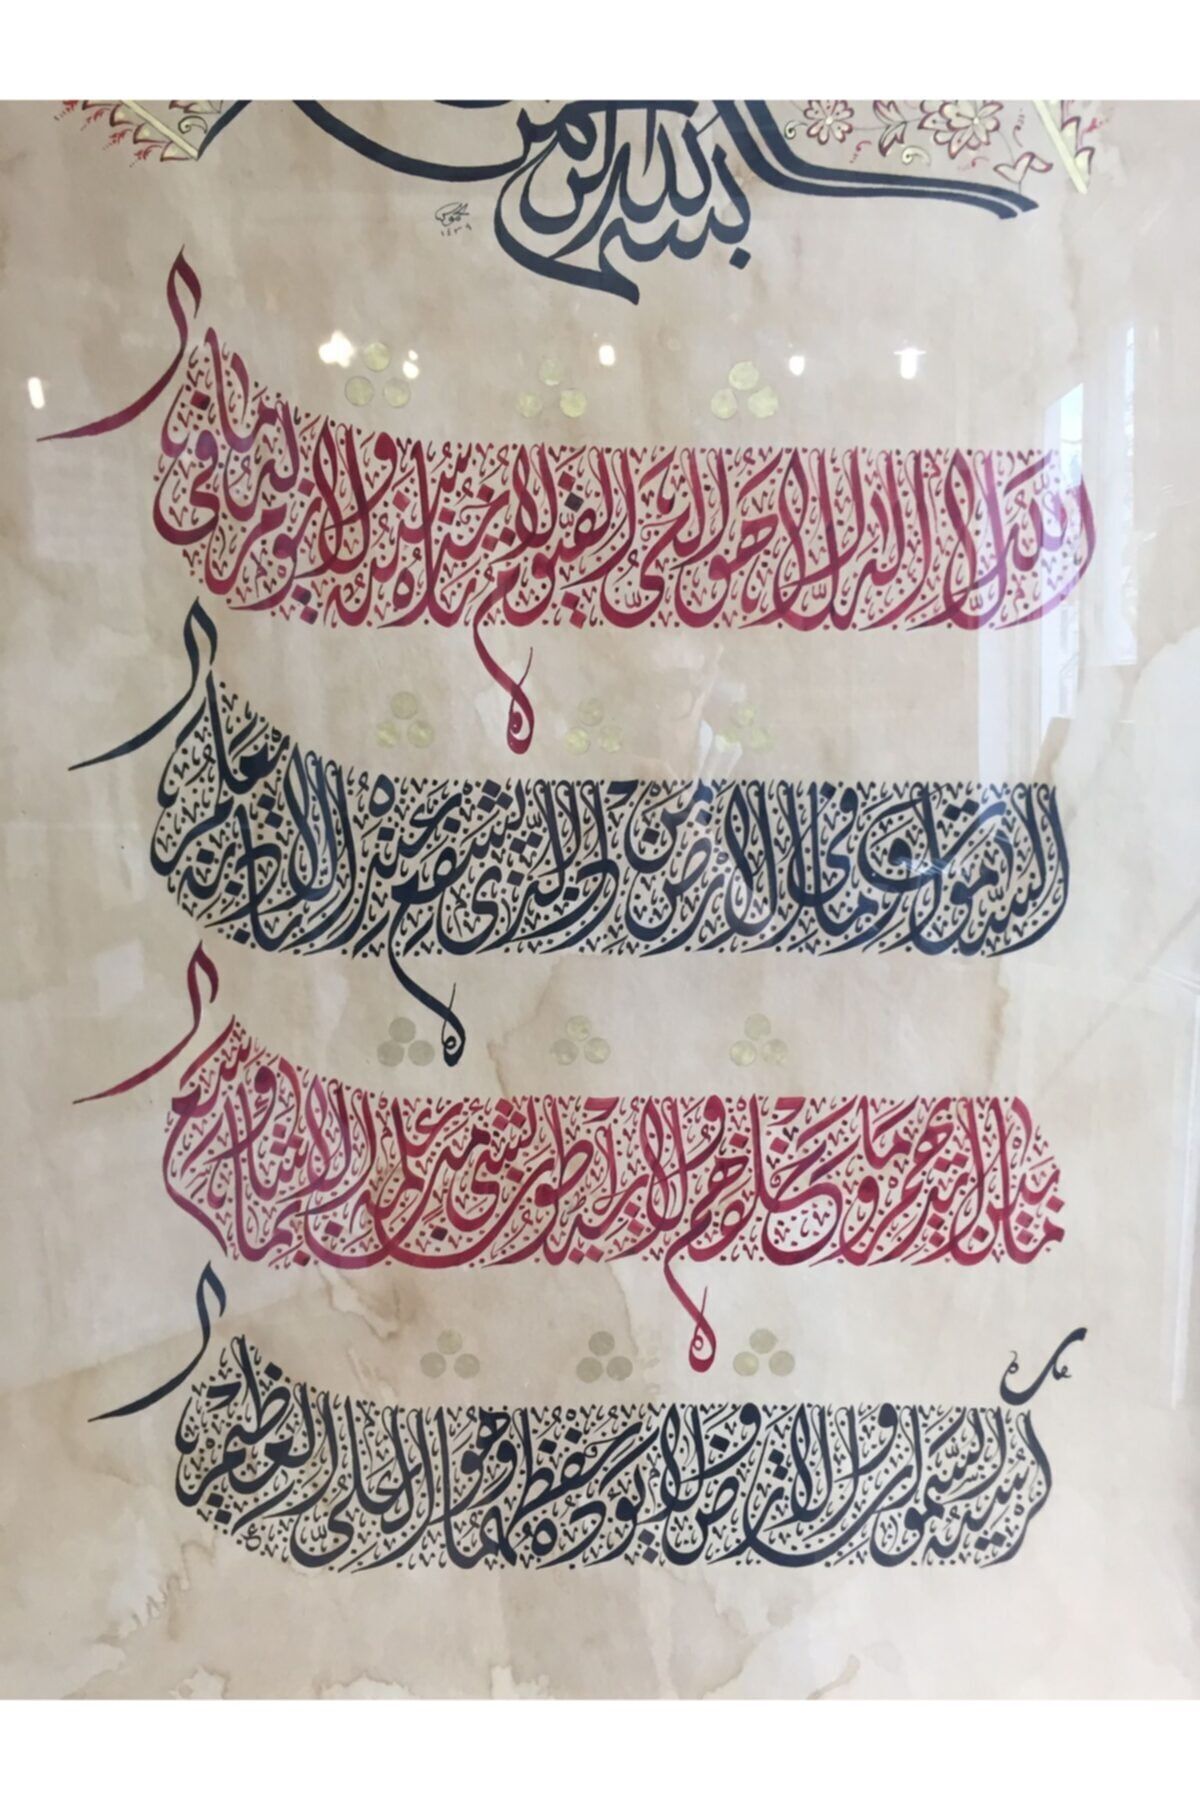 بسم الله الرحمن
١٤٣٩
الله لا إله إلا هو الحي القيوم لا تأخذه سنة ولا نوم له ما في
السموات وما في الأرض من ذا الذي يشفع عنده إلا بإذنه يعلم
ما بين أيديهم وما خلفهم ولا يحيطون بشيء من علمه إلا بما شاء وسع
كرسيه السموات والأرض ولا يؤده حفظهما وهو العلي العظيم